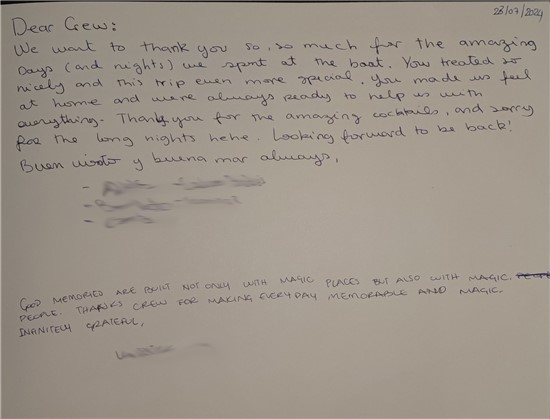 28/07/2024
Dear Crew:
We want to thank you so, so much for the amazing
Days (and nights) we spent at the boat. You treated so
nicely and this trip even more special. You made us feel
at home and were always ready to help us with
everything. Thank you for the amazing cocktails, and sorry
for the long nights hehe. Looking forward to be back!
Buen viento y buena mar always,
GOOD MEMORIES ARE BUILT NOT ONLY WITH MAGIC PLACES BUT ALSO WITH MAGIC.
PEOPLE. THANKS CREW FOR MAKING EVERYDAY MEMORABLE AND MAGIC.
INFINITELY GRATEFUL,